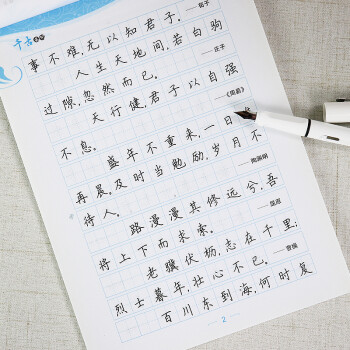 千古
事不难,无以知君子。——荀子
人生天地间,若白驹
过隙,忽然而已。 ——庄子
天行健,君子以自强
不息。 ——《周易》
盛年不重来,一日
再晨。及时当勉励,岁月不
待人。 ——陶渊明
路漫漫其修远兮,吾
将上下而求索。 ——屈原
老骥伏枥,志在千里;
烈士暮年,壮心不已。 ——曹操
百川东到海,何时复
2